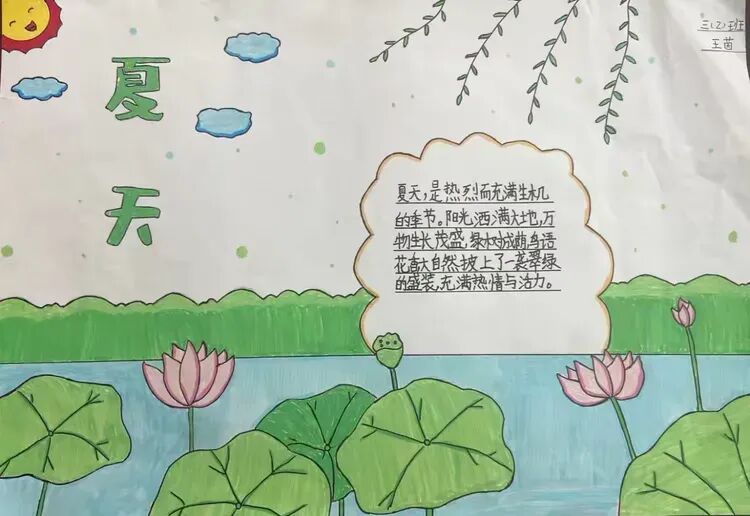 夏
天
三(2)班
王茵
夏天，是热烈而充满生机
的季节。阳光洒满大地，万
物生长茂盛，绿树成荫，鸟语
花香大自然披上了一袭翠绿
的盛装，充满热情与活力。